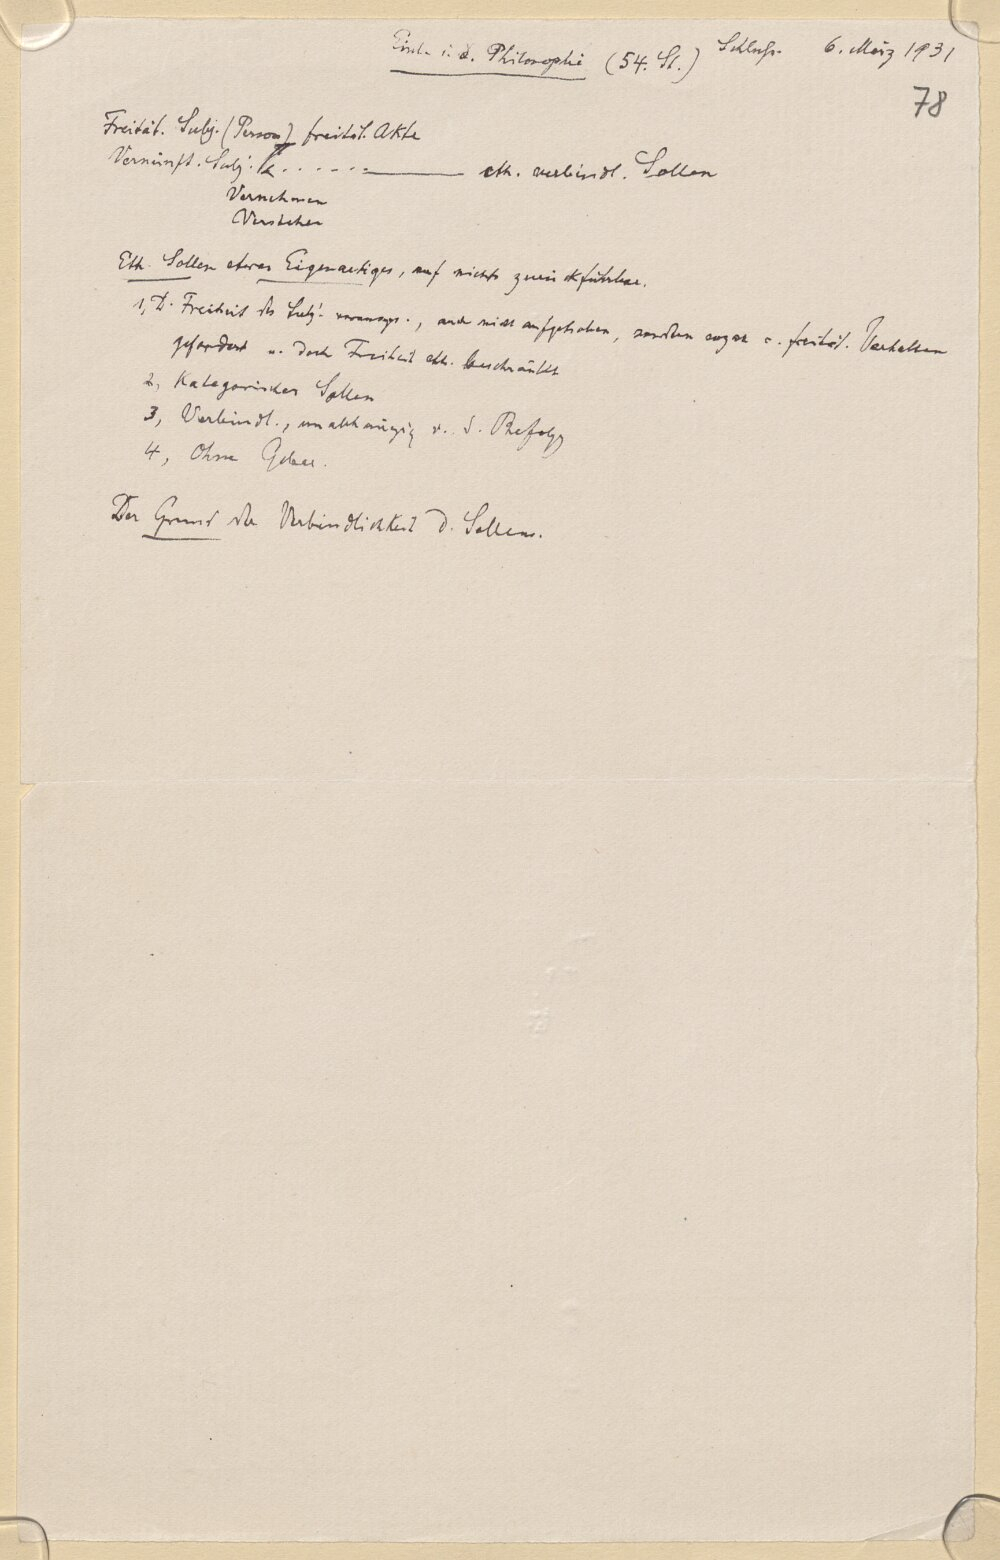 Einl. i. d. Philosophie (54. St.) Schluß. 6. März 1931
78
Freität. Subj. (Person) freität. Akte
Vernünft. Subj. . . . . . . eth. verbindl. Sollen
Vernehmen
Verstehen
Eth. Sollen etwas Eigenartiges, auf nichts zurückführbar.
1, D. Freiheit des Subj. vorausges., auch nicht aufgehoben, sondern sogar e. freität. Verhalten
gefordert u. doch Freiheit eth. beschränkt
2, Kategorisches Sollen
3, Verbindl., unabhängig v. d. Befolg
4, Ohne
Der Grund der Verbindlichkeit d. Sollens.